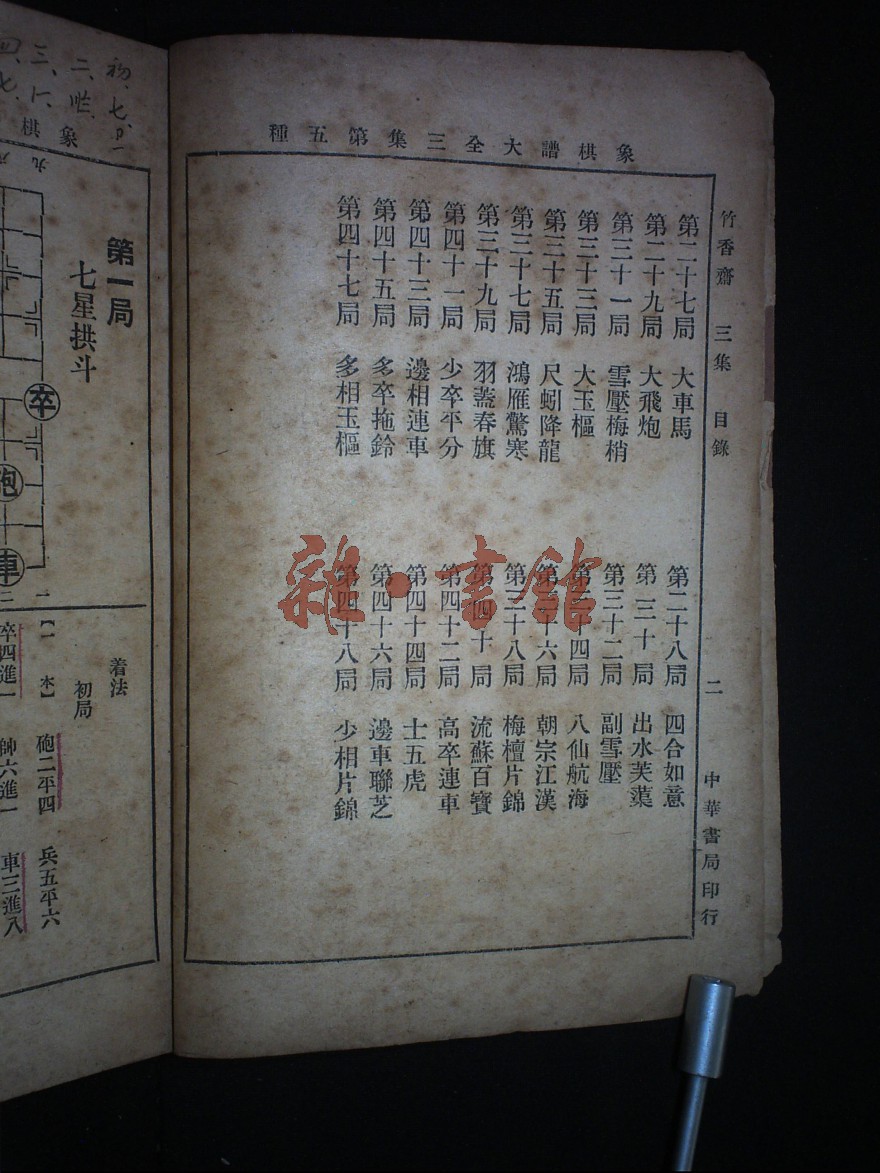 象棋譜大全三集第五種
竹香齋 三集 目錄 二 中華書局印行
第二十七局 大車馬
第二十九局 大飛炮
第三十一局 雪壓梅梢
第三十三局 大玉樞
第三十五局 尺蚓降龍
第三十七局 鴻雁驚寒
第三十九局 羽蓋春旗
第四十一局 少卒平分
第四十三局 邊相連車
第四十五局 多卒拖鈴
第四十七局 多相玉樞
第二十八局 四合如意
第三十局 出水芙蕖
第三十二局 副雪壓
第三十四局 八仙航海
第三十六局 朝宗江漢
第三十八局 梅檀片錦
第四十局 流蘇百寶
第四十二局 高卒連車
第四十四局 士五虎
第四十六局 邊車聯芝
第四十八局 少相片錦
雜·書館
象棋
第一局
七星拱斗
卒
砲
車
着法
初局
【一 本】 砲二平四 兵五平六
卒四進一 帥六進一 車三進八